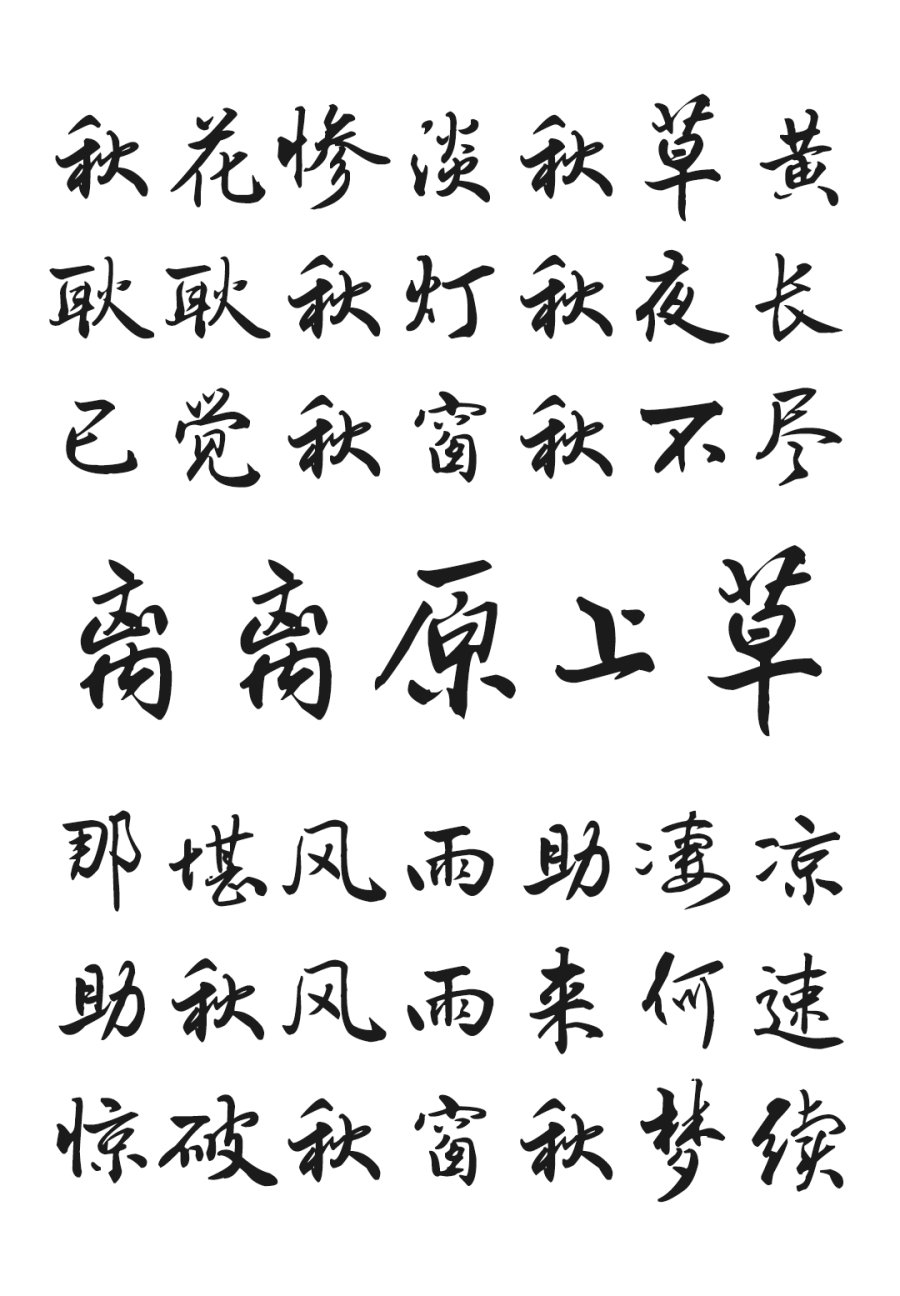 秋花惨淡秋草黄
耿耿秋灯秋夜长
已觉秋窗秋不尽
离离原上草
那堪风雨助凄凉
助秋风雨来何速
惊破秋窗秋梦续